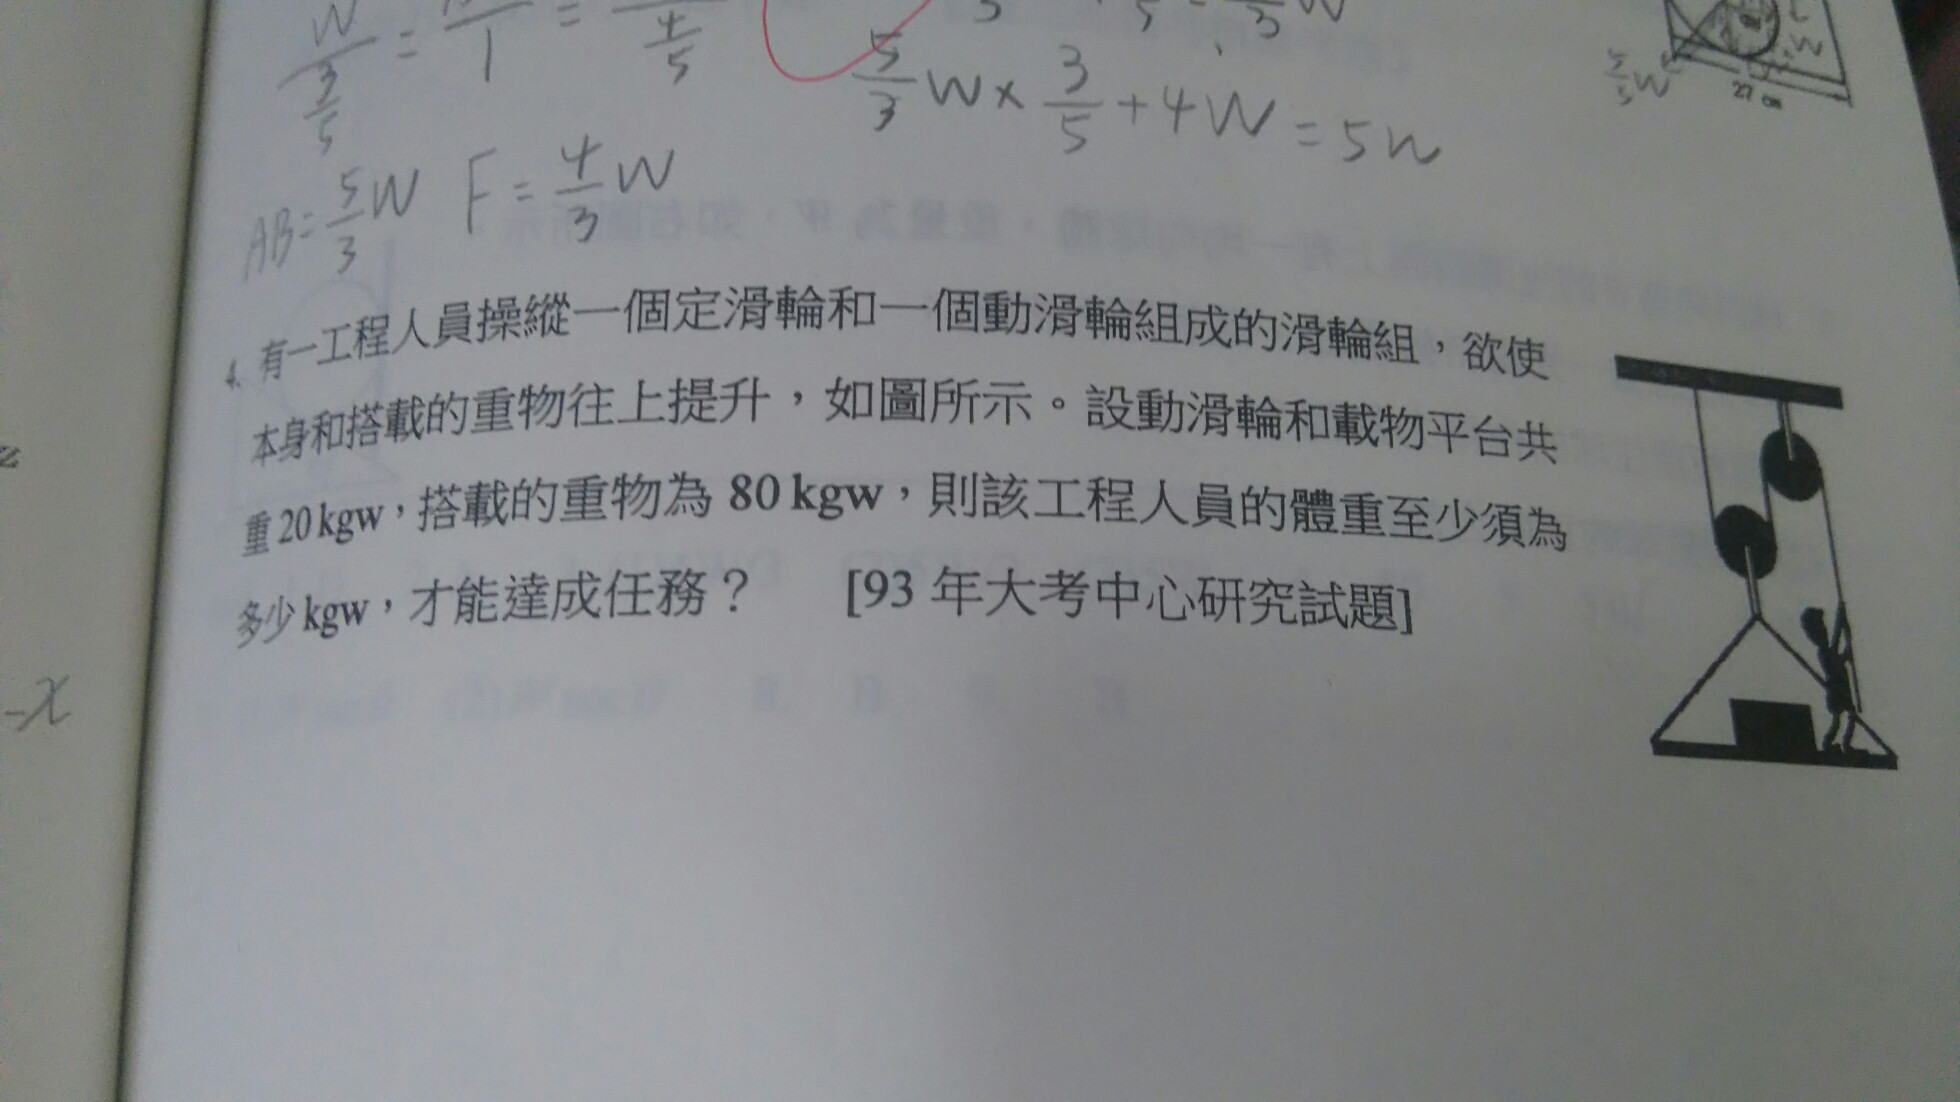 W/(3/5) = /1 = /(4/5)
5/3 W × 3/5 + 4W = 5W
AB = 5/3 W F = 4/3 W
5/3 W
27 cm
4. 有一工程人員操縱一個定滑輪和一個動滑輪組成的滑輪組，欲使
本身和搭載的重物往上提升，如圖所示。設動滑輪和載物平台共
重 20 kgw，搭載的重物為 80 kgw，則該工程人員的體重至少須為
多少 kgw，才能達成任務？ [93 年大考中心研究試題]
-x